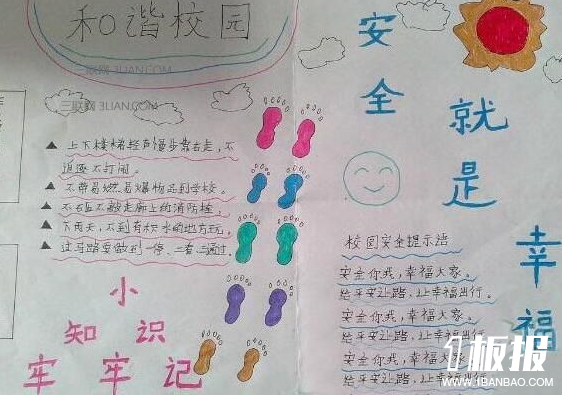 和谐校园
三联网 3LIAN.COM
三联网 3LIAN.COM
▲ 上下楼梯轻声慢步靠右走，不
追逐不打闹。
▲ 不带易燃易爆物品到学校。
▲ 不敲走廊上的消防栓。
▲ 下雨天，不到有积水的地方玩。
▲ 过马路要做到一停、二看、三通过。
小
知识
牢牢记
安全
就是
幸福
校园安全提示语
安全你我，幸福大家。
给平安让路，让幸福出行。
安全你我，幸福大家。
给平安让路，让幸福出行
安全你我，幸福大家。
给平安让路，让幸福出行。
1板报
WWW.1BANBAO.COM